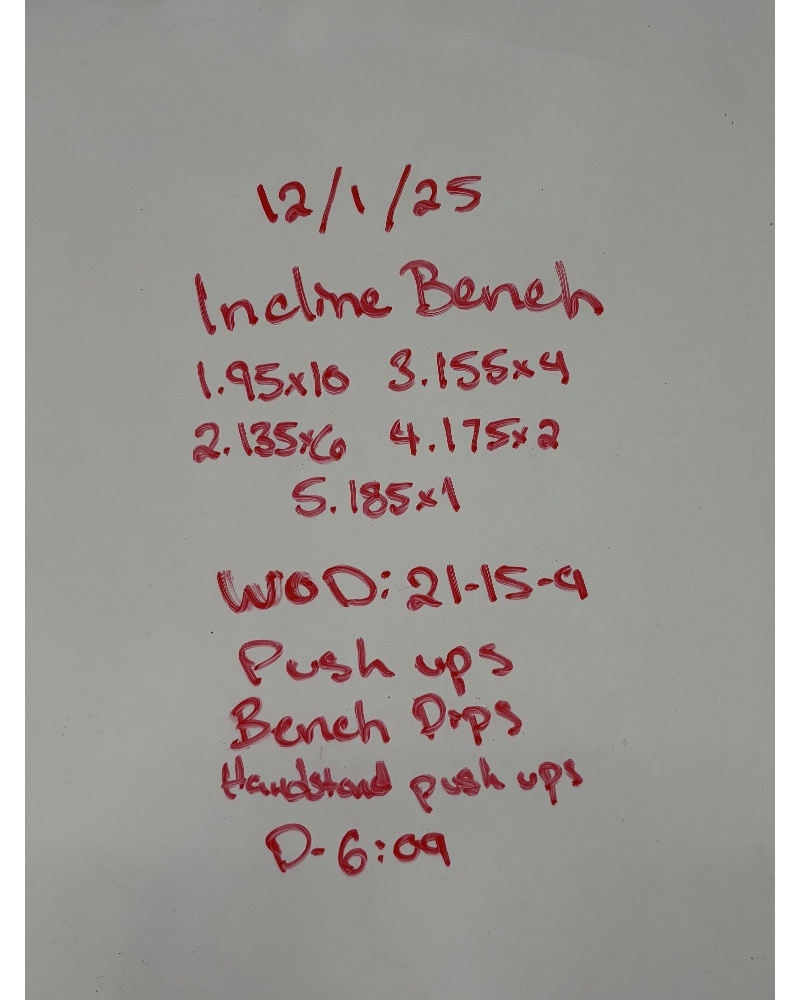 12/1/25
Incline Bench
1.95x10 3.155x4
2.135x6 4.175x2
5.185x1
WOD: 21-15-9
Push ups
Bench Dips
Handstand push ups
D-6:09